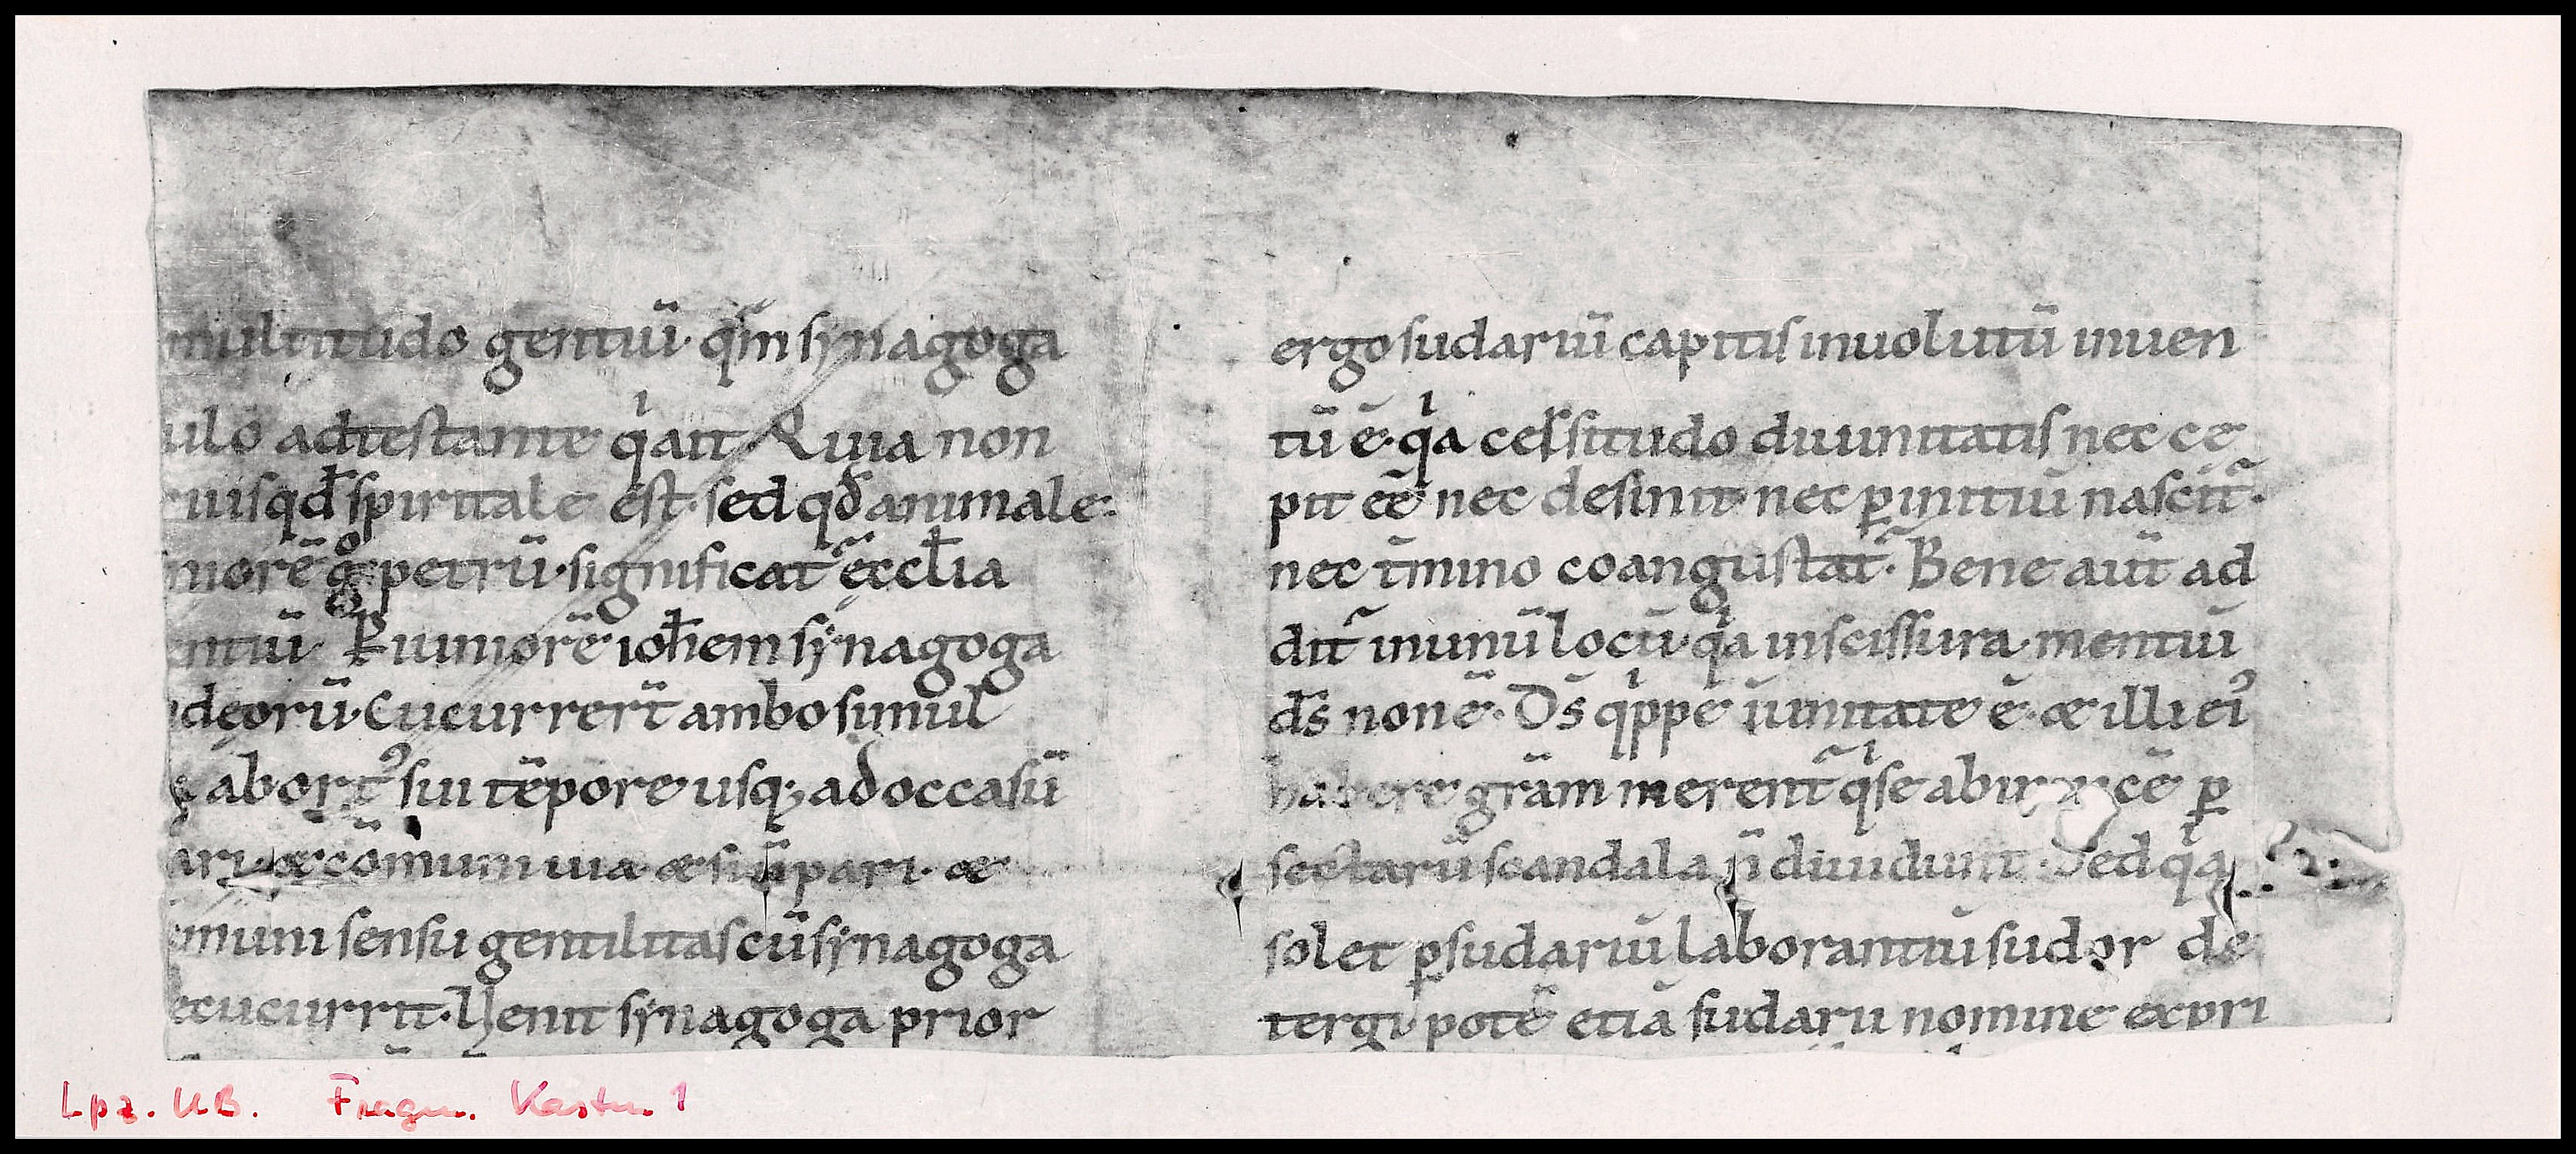 multitudo gentiū· qm̄ synagoga
ulo adtestante qͥ ait Quia non
uisqđ spiritale est· sed qđ animale·
niorē gͦ petrū· significat ęcclīa
entiū P iuniorē ioħem synagoga
deorū· Cucurrerт̄ ambo simul
ab ort᾿ sui tēpore usq; ad occasū
ari· & cōmuni uia & si n̄ pari· &
muni sensu gentilitas cū synagoga
ecucurrit· Uenit synagoga prior
ergo sudariū capitis inuolutū inuen
tū ē· qͥa celsitudo diuinitatis nec ce
pit eē nec desinit nec ꝑ initiū nascit̄·
nec t̄mino coangustat̄· Bene aūt ad
dit̄ inunū locū· qͥa inscissura mentiū
d̄s non ē· D̄s qͥppe ī unitate ē· & illi ei᾿
habere grām merent̄ qͥ se ab inuicē ꝑ
sectarū scandala n̄ diuidunt· Sed qͥa
solet ꝑ sudariū laborantiū sudor de
tergi· potē etiā sudarii nomine expri
Lpz. UB. Fragm. Kastn. 1